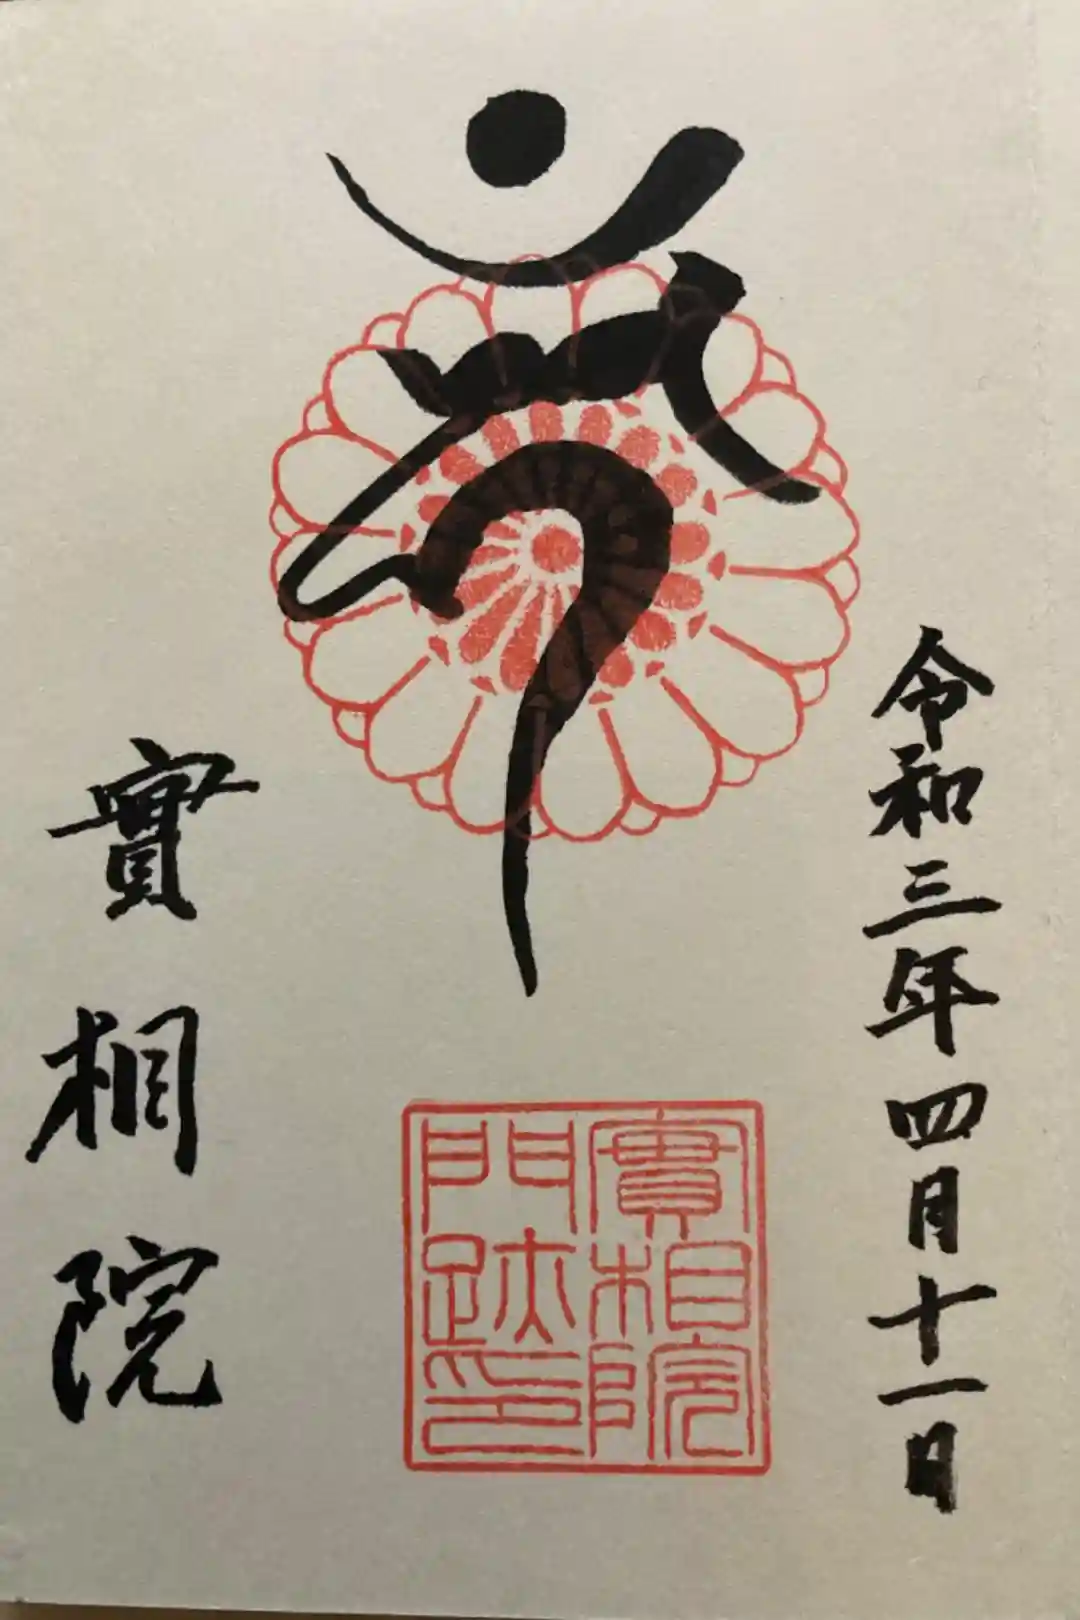 令和三年四月十一日
實相院
實相院
門跡印